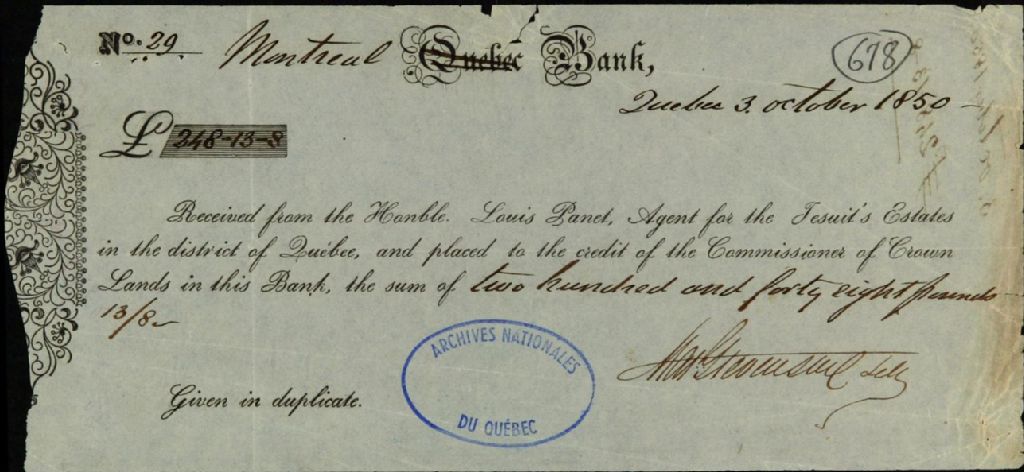 No. 29 Montreal Quebec Bank,
678
Quebec 3. october 1850
£ 248-13-8
Received from the Honble. Louis Panet, Agent for the Jesuit's Estates
in the district of Quebec, and placed to the credit of the Commissioner of Crown
Lands in this Bank, the sum of two hundred and forty eight pounds
13/8
Stevenson
Given in duplicate.
ARCHIVES NATIONALES
DU QUÉBEC